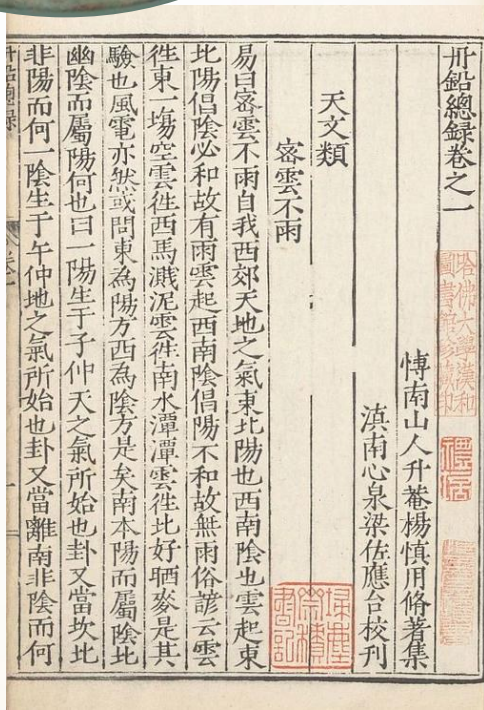 丹鉛總録卷之一
哈佛大學漢和
圖書館珍藏印
博南山人升菴楊慎用脩著集
滇南心泉梁佐應台校刊
天文類
密雲不雨
易曰密雲不雨自我西郊天地之氣東北陽也西南陰也雲起東
北陽倡陰必和故有雨雲起西南陰倡陽不和故無雨俗諺云雲
徃東一塲空雲徃西馬濺泥雲徃南水潭潭雲徃北好晒麥是其
驗也風電亦然或問東為陽方西為陰方是矣南本陽而屬陰北
幽陰而屬陽何也曰一陽生于子仲天之氣所始也卦又當坎北
非陽而何一陰生于午仲地之氣所始也卦又當離南非陰而何
丹鉛總录
卷一
一